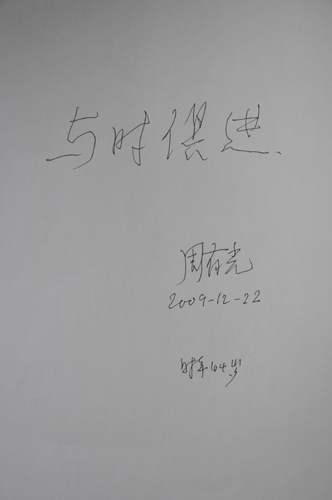 与时俱进、
周有光
2009-12-22
时年104岁